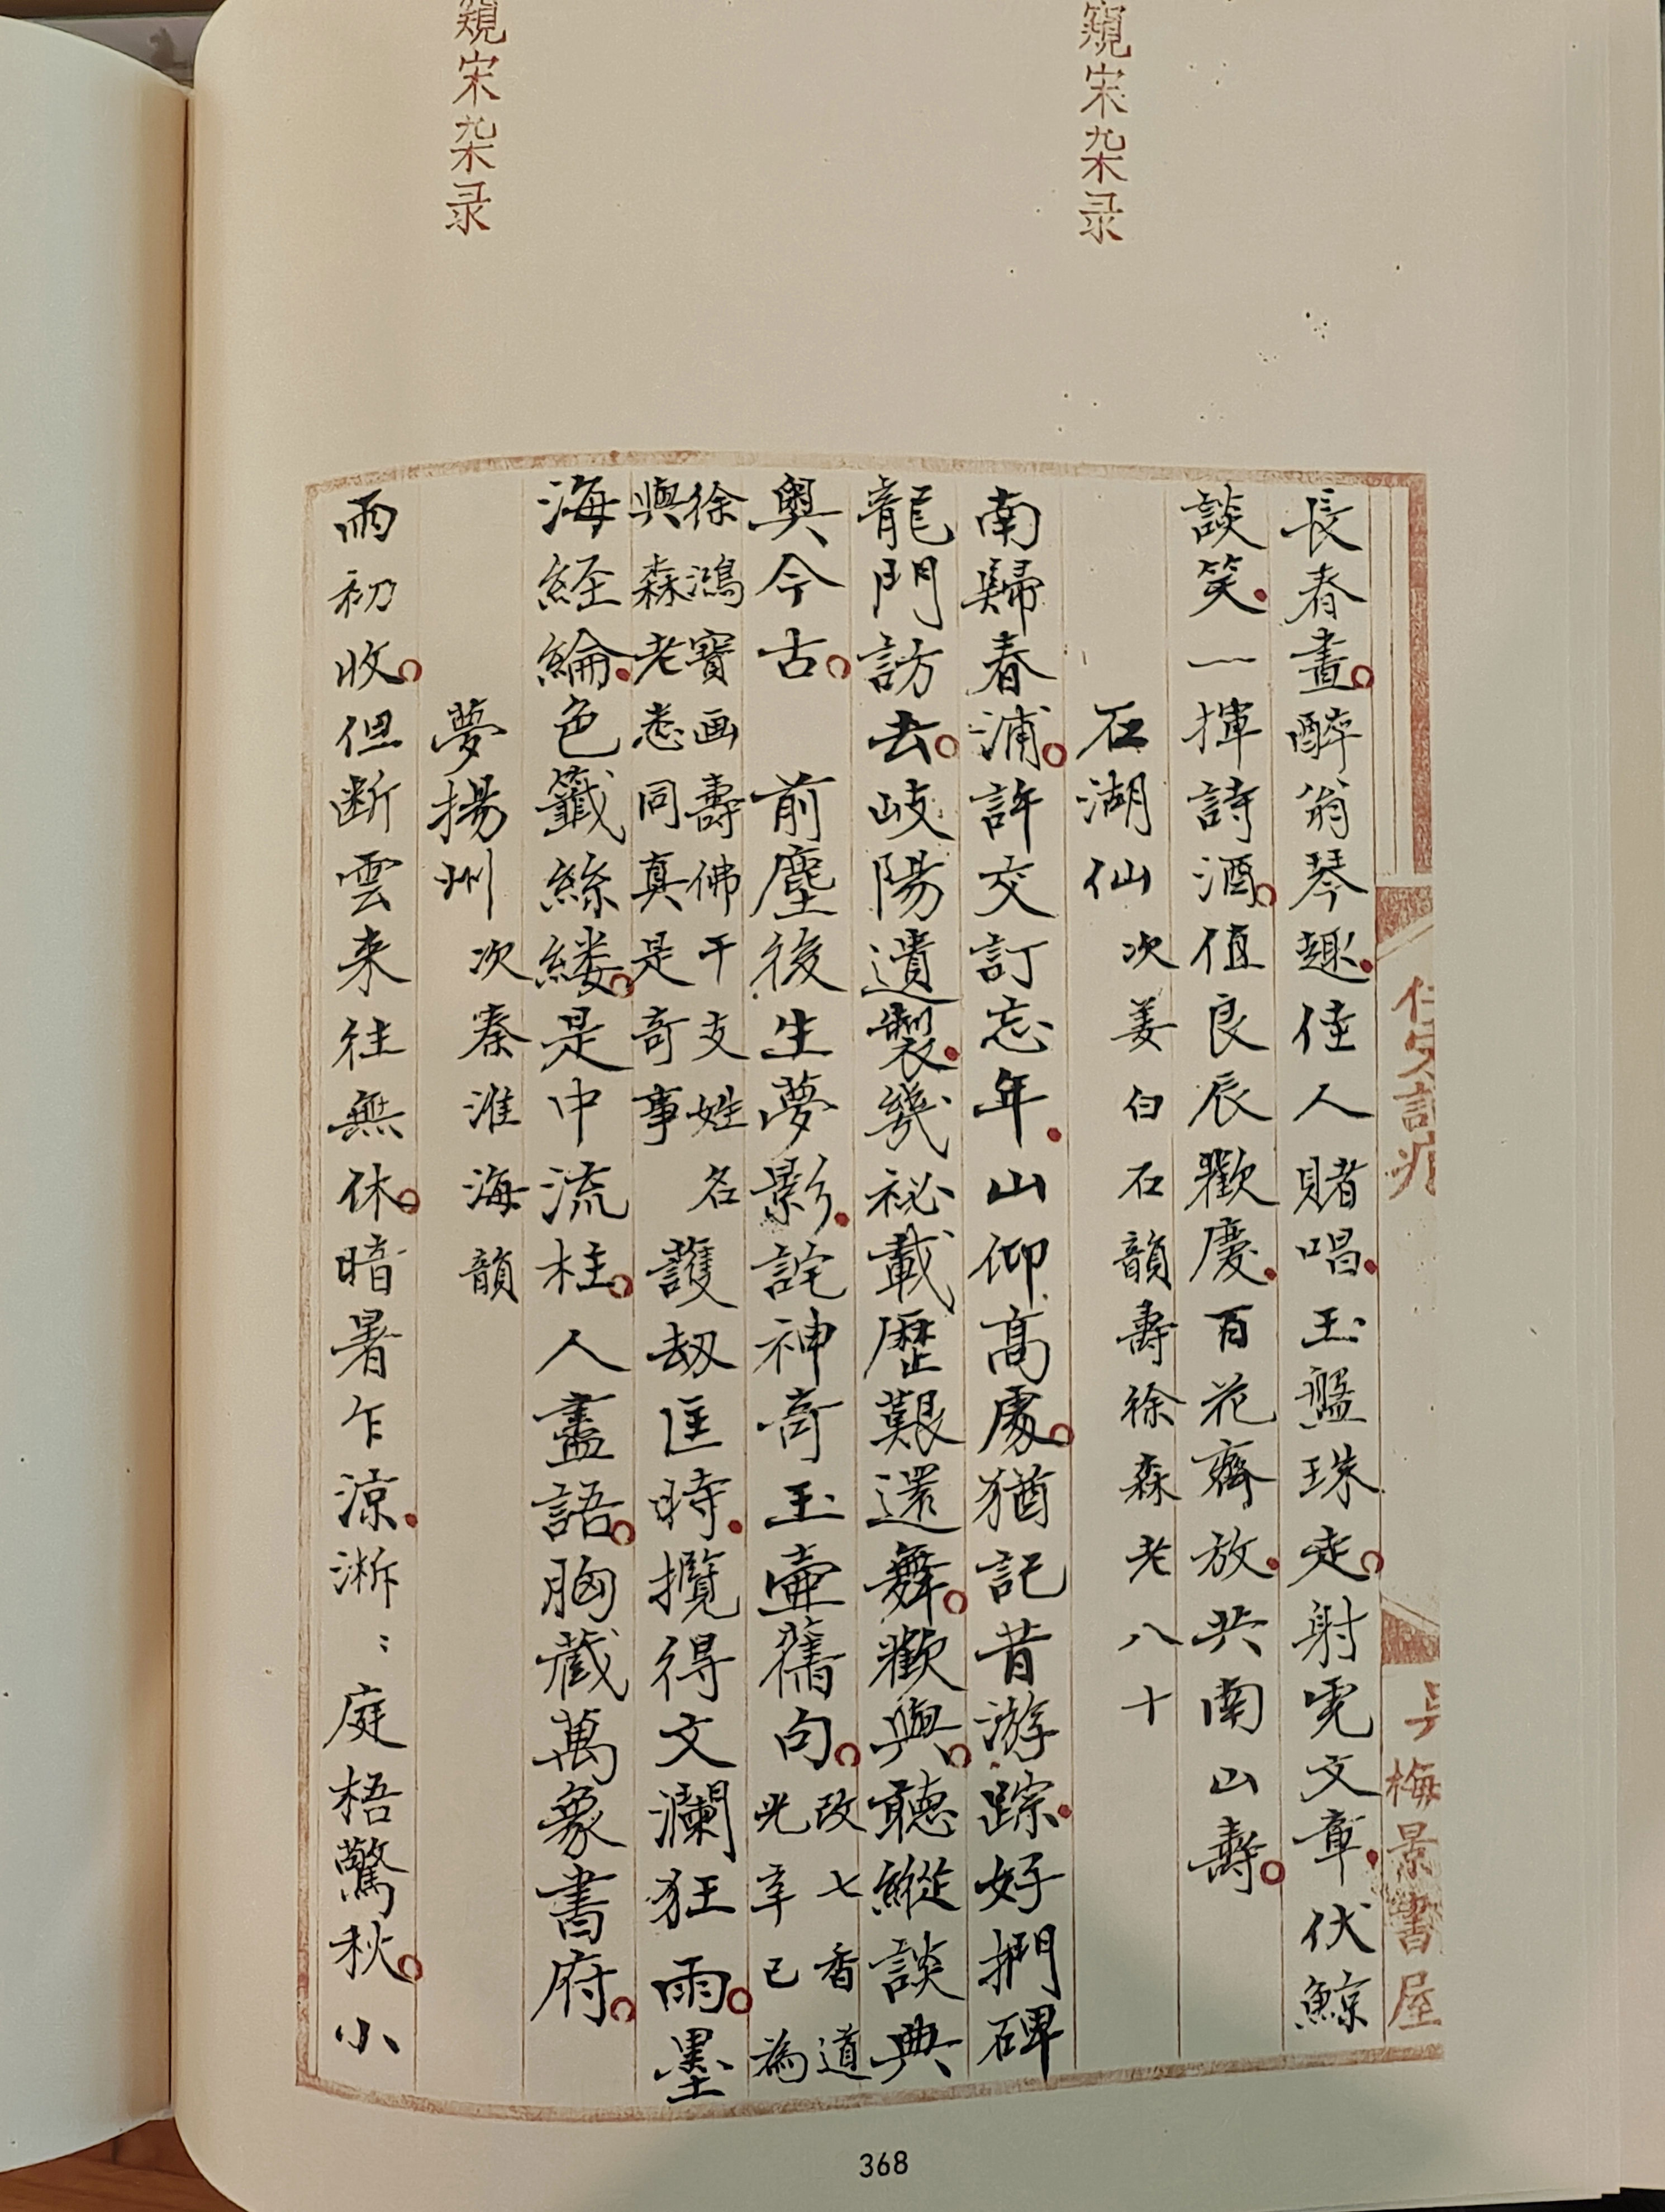 窺宋杂录
窺宋杂录
梅景書屋
長春晝醉翁琴趣佳人賭唱玉盤珠走射雕文章伏鯨
談笑一揮詩酒值良辰歡慶百花齊放共南山壽
石湖仙 次姜白石韻壽徐森老八十
南歸春浦許交訂忘年山仰高處猶記昔游踪好捫碑
龍門訪去岐陽遺製幾祕載歷艱還舞歡與聽縱談典
奥今古 前塵後生夢影詫神奇玉壷舊句 改七香道
光辛巳為
徐鴻寶画壽佛干支姓名
與森老悉同真是奇事
護劫匡時攬得文瀾狂雨墨
海経綸色籤絲縷是中流柱人盡語胸藏萬象書府
夢揚州 次秦淮海韻
雨初收但断雲来往無休暗暑乍涼淅：庭梧驚秋小
368